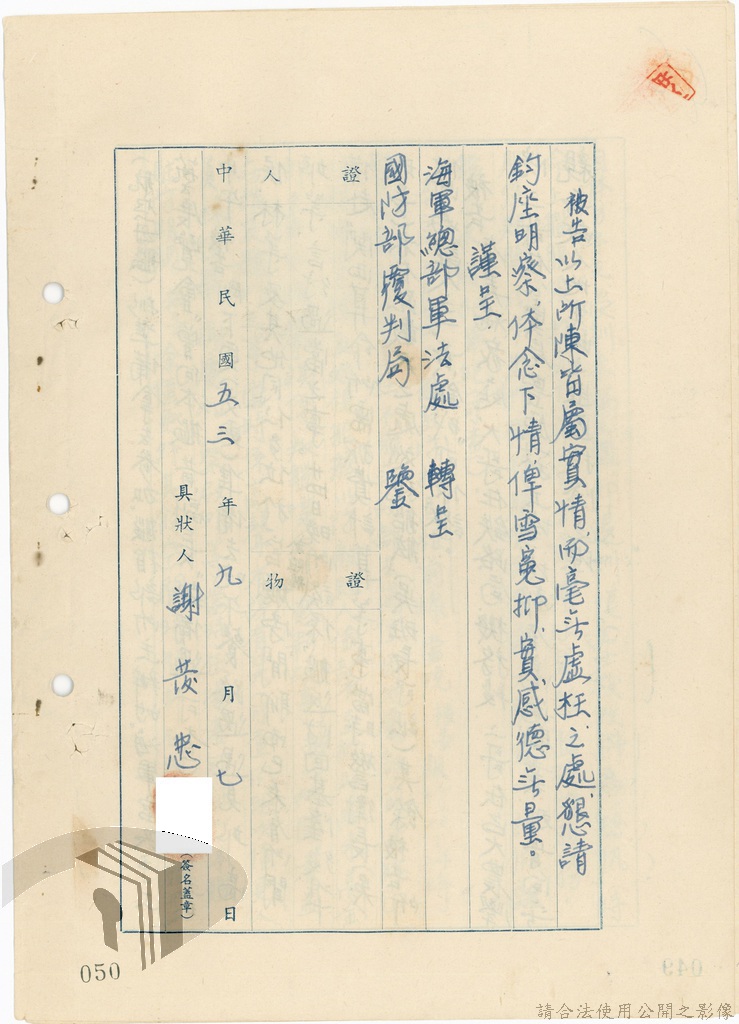 被告以上所陳皆屬實情,而毫无虛枉之處,懇請
鈞座明察,体念下情,俾雪冤抑,實感德无量。
謹呈.
海軍總部軍法處 轉呈
國防部覆判局 鑒
證人
證物
中華民國五三年九月七日
具狀人 謝發忠 (簽名蓋章)
050
049
請合法使用公開之影像